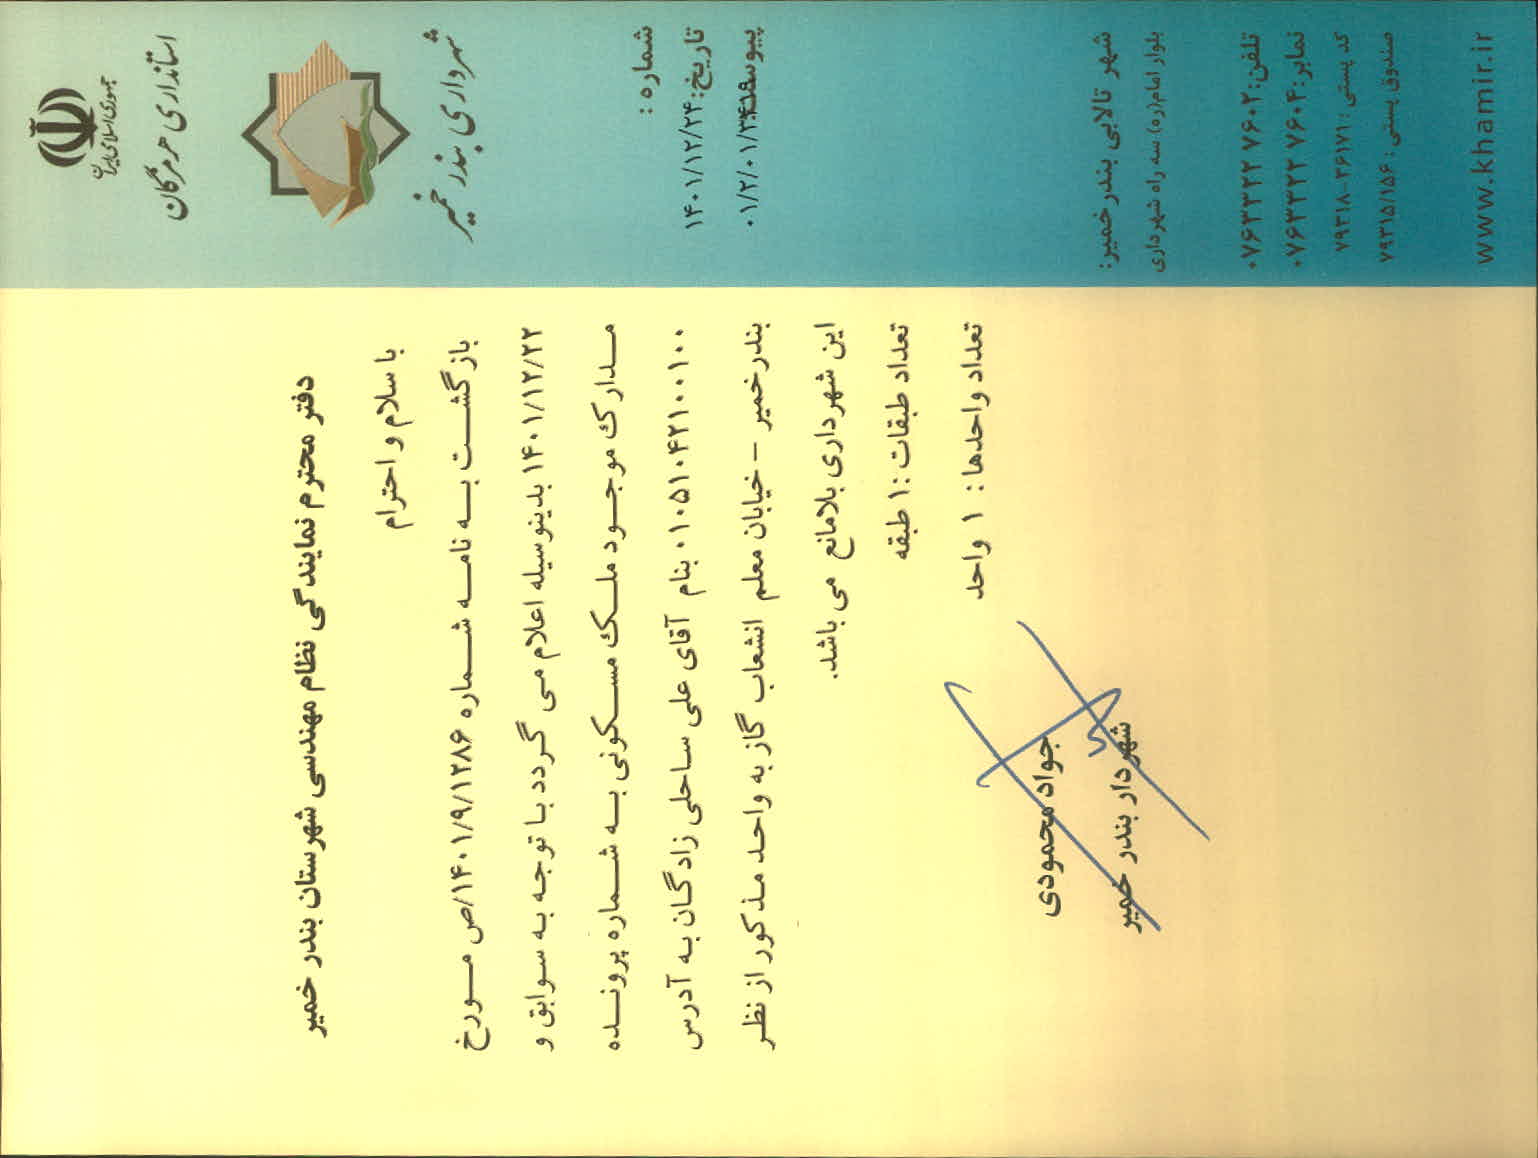 جمهوری اسلامی ایران
استانداری هرمزگان
شهرداری بندر خمیر
شماره :
تاریخ: ۱۴۰۱/۱۲/۲۴
پیوست
۰۱/۲/۰۱/
شهر تالابی بندر خمیر:
بلوار امام(ره) سه راه شهرداری
تلفن: ۰۷۶۳۳۲۲ ۷۶۰۲
نمابر: ۰۷۶۳۳۲۲ ۷۶۰۴
کد پستی : ۳۶۱۷۱-۷۹۳۱۸
صندوق پستی : ۷۹۳۱۵/۱۵۶
www.khamir.ir
دفتر محترم نمایندگی نظام مهندسی شهرستان بندر خمیر
با سلام و احترام
بازگشت به نامه شماره ۱۴۰۱/۹/۱۲۸۶/ص مورخ
۱۴۰۱/۱۲/۲۲ بدینوسیله اعلام می گردد با توجه به سوابق و
مدارک موجود ملک مسکونی به شماره پرونده
۰۱۰۵۱۰۴۲۱۰۰۱۰۰ بنام آقای علی ساحلی زادگان به آدرس
بندرخمیر - خیابان معلم انشعاب گاز به واحد مذکور از نظر
این شهرداری بلامانع می باشد.
تعداد طبقات :۱ طبقه
تعداد واحدها : ۱ واحد
جواد محمودی
شهردار بندر خمیر